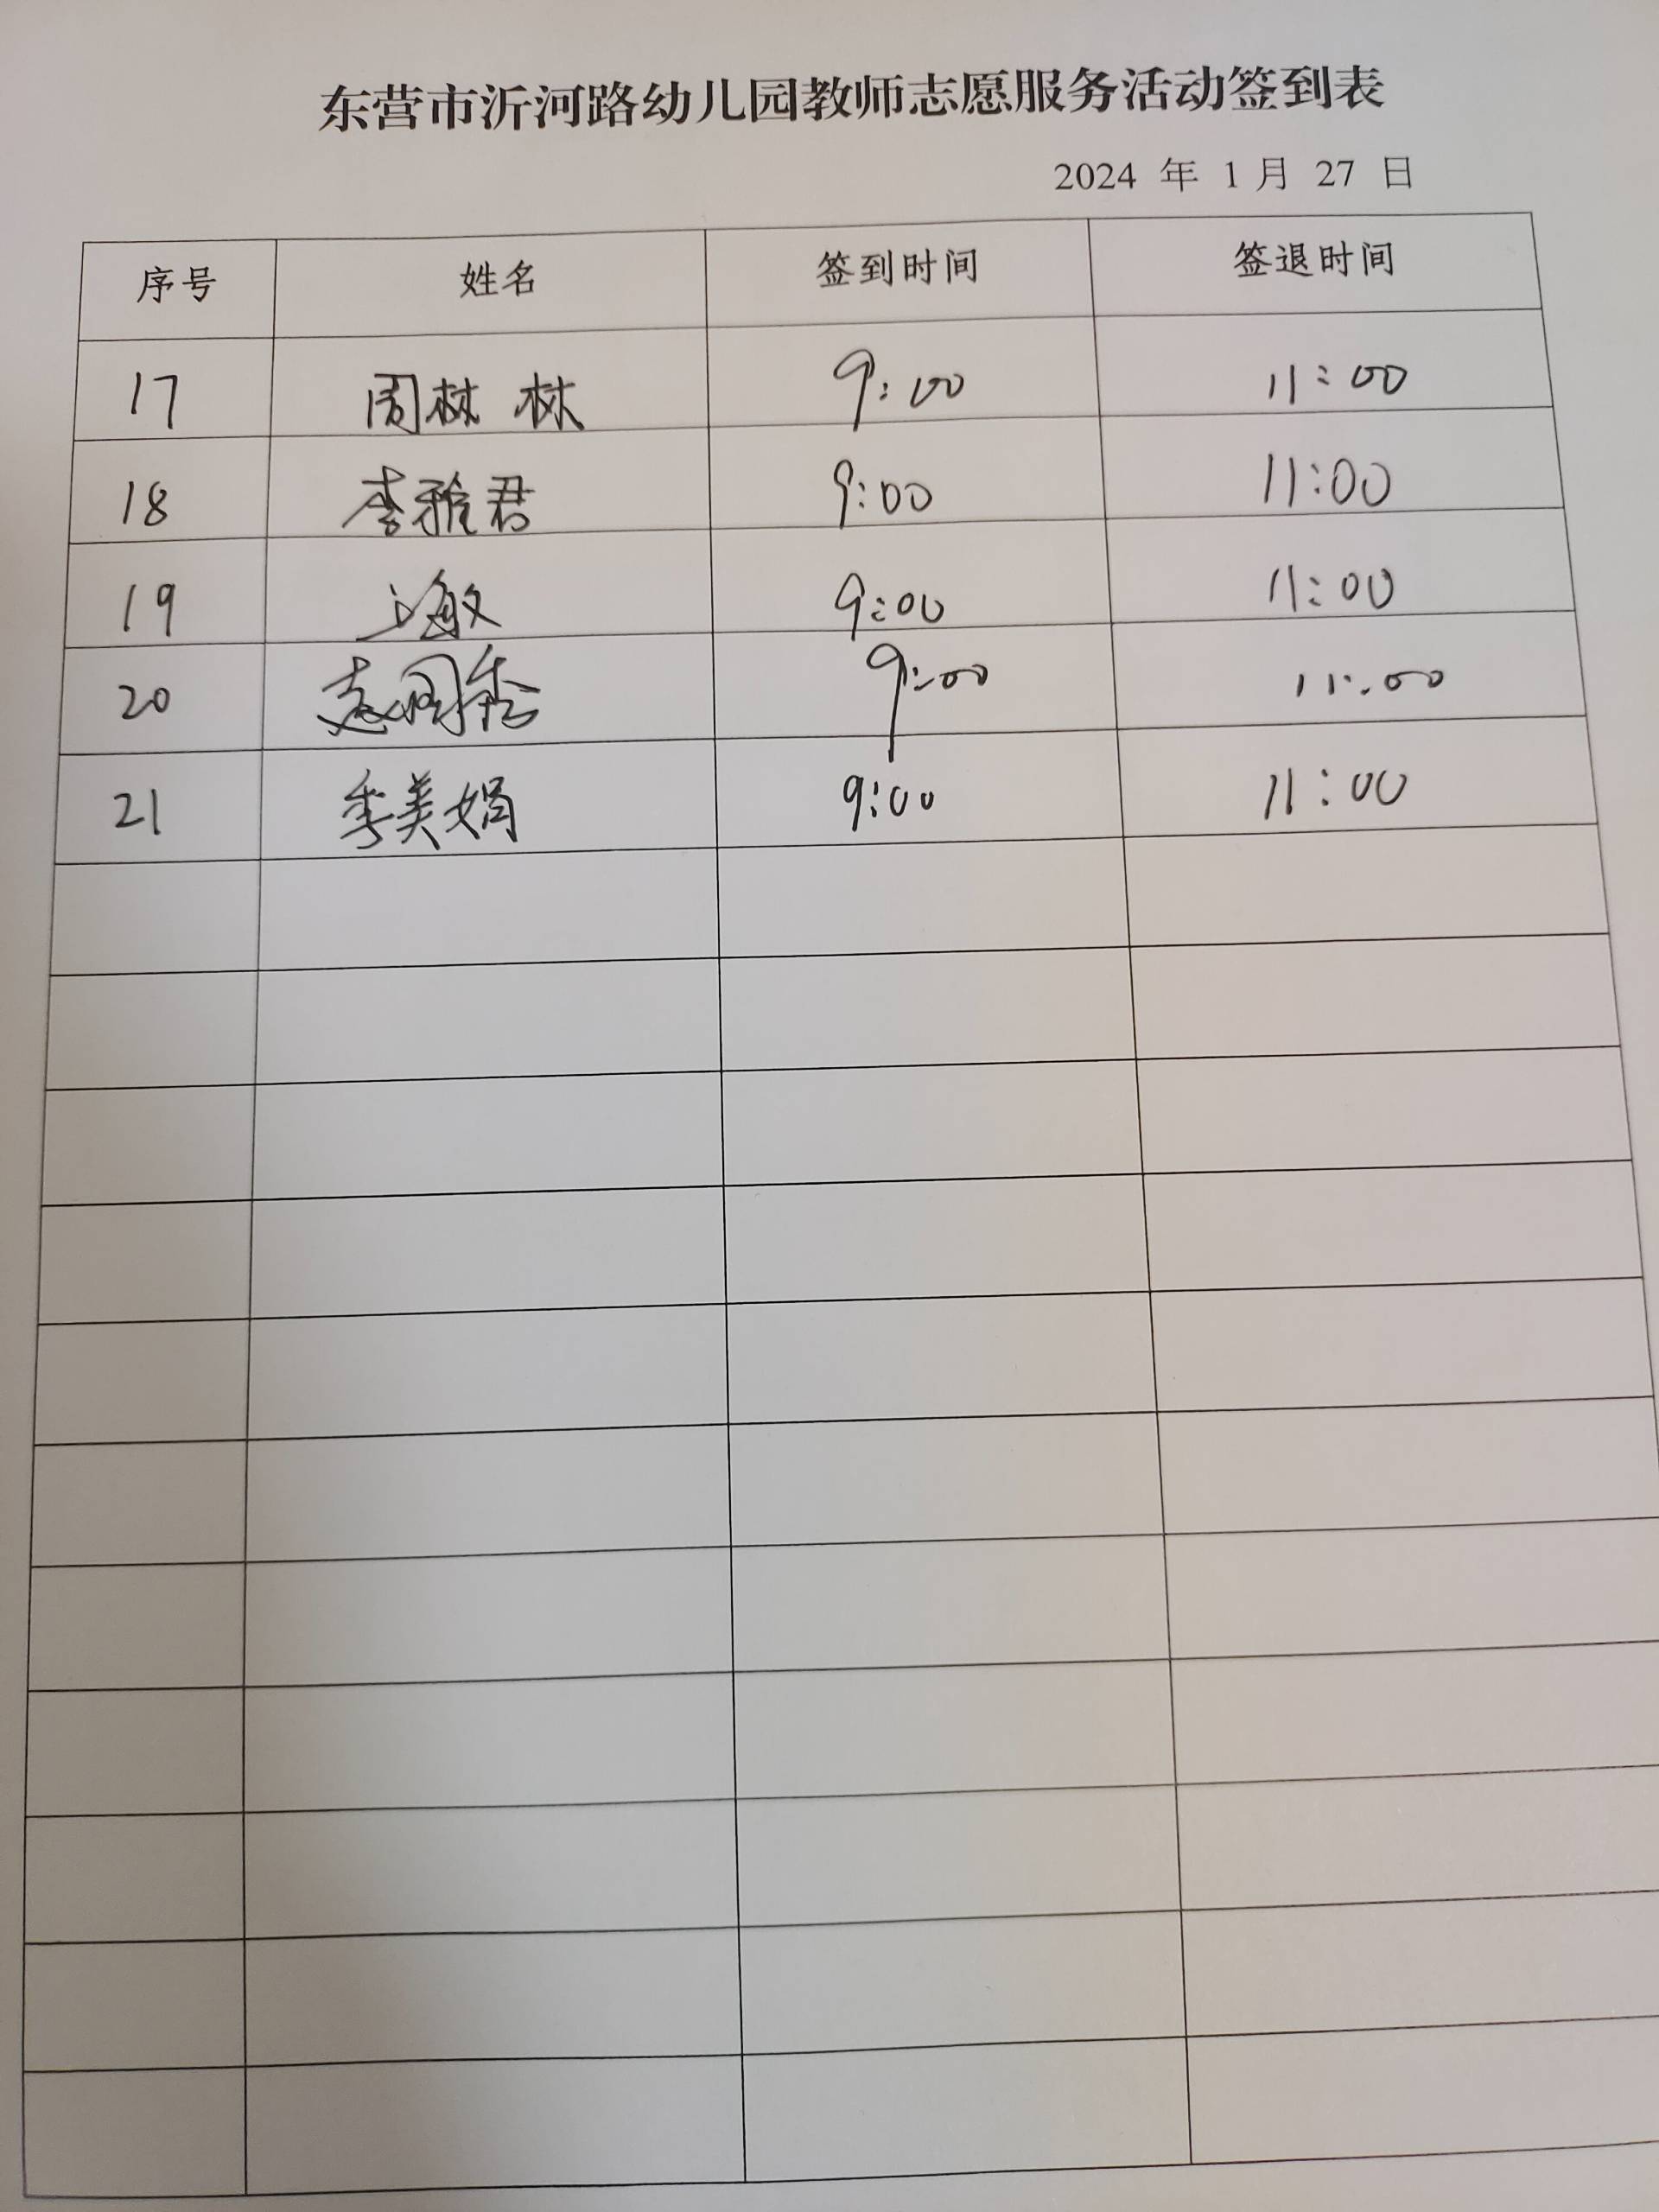 东营市沂河路幼儿园教师志愿服务活动签到表
2024 年 1 月 27 日
序号 姓名 签到时间 签退时间
17 周林林 9:00 11:00
18 李雅君 9:00 11:00
19 9:00 11:00
20 9:00 11:00
21 季美娟 9:00 11:00